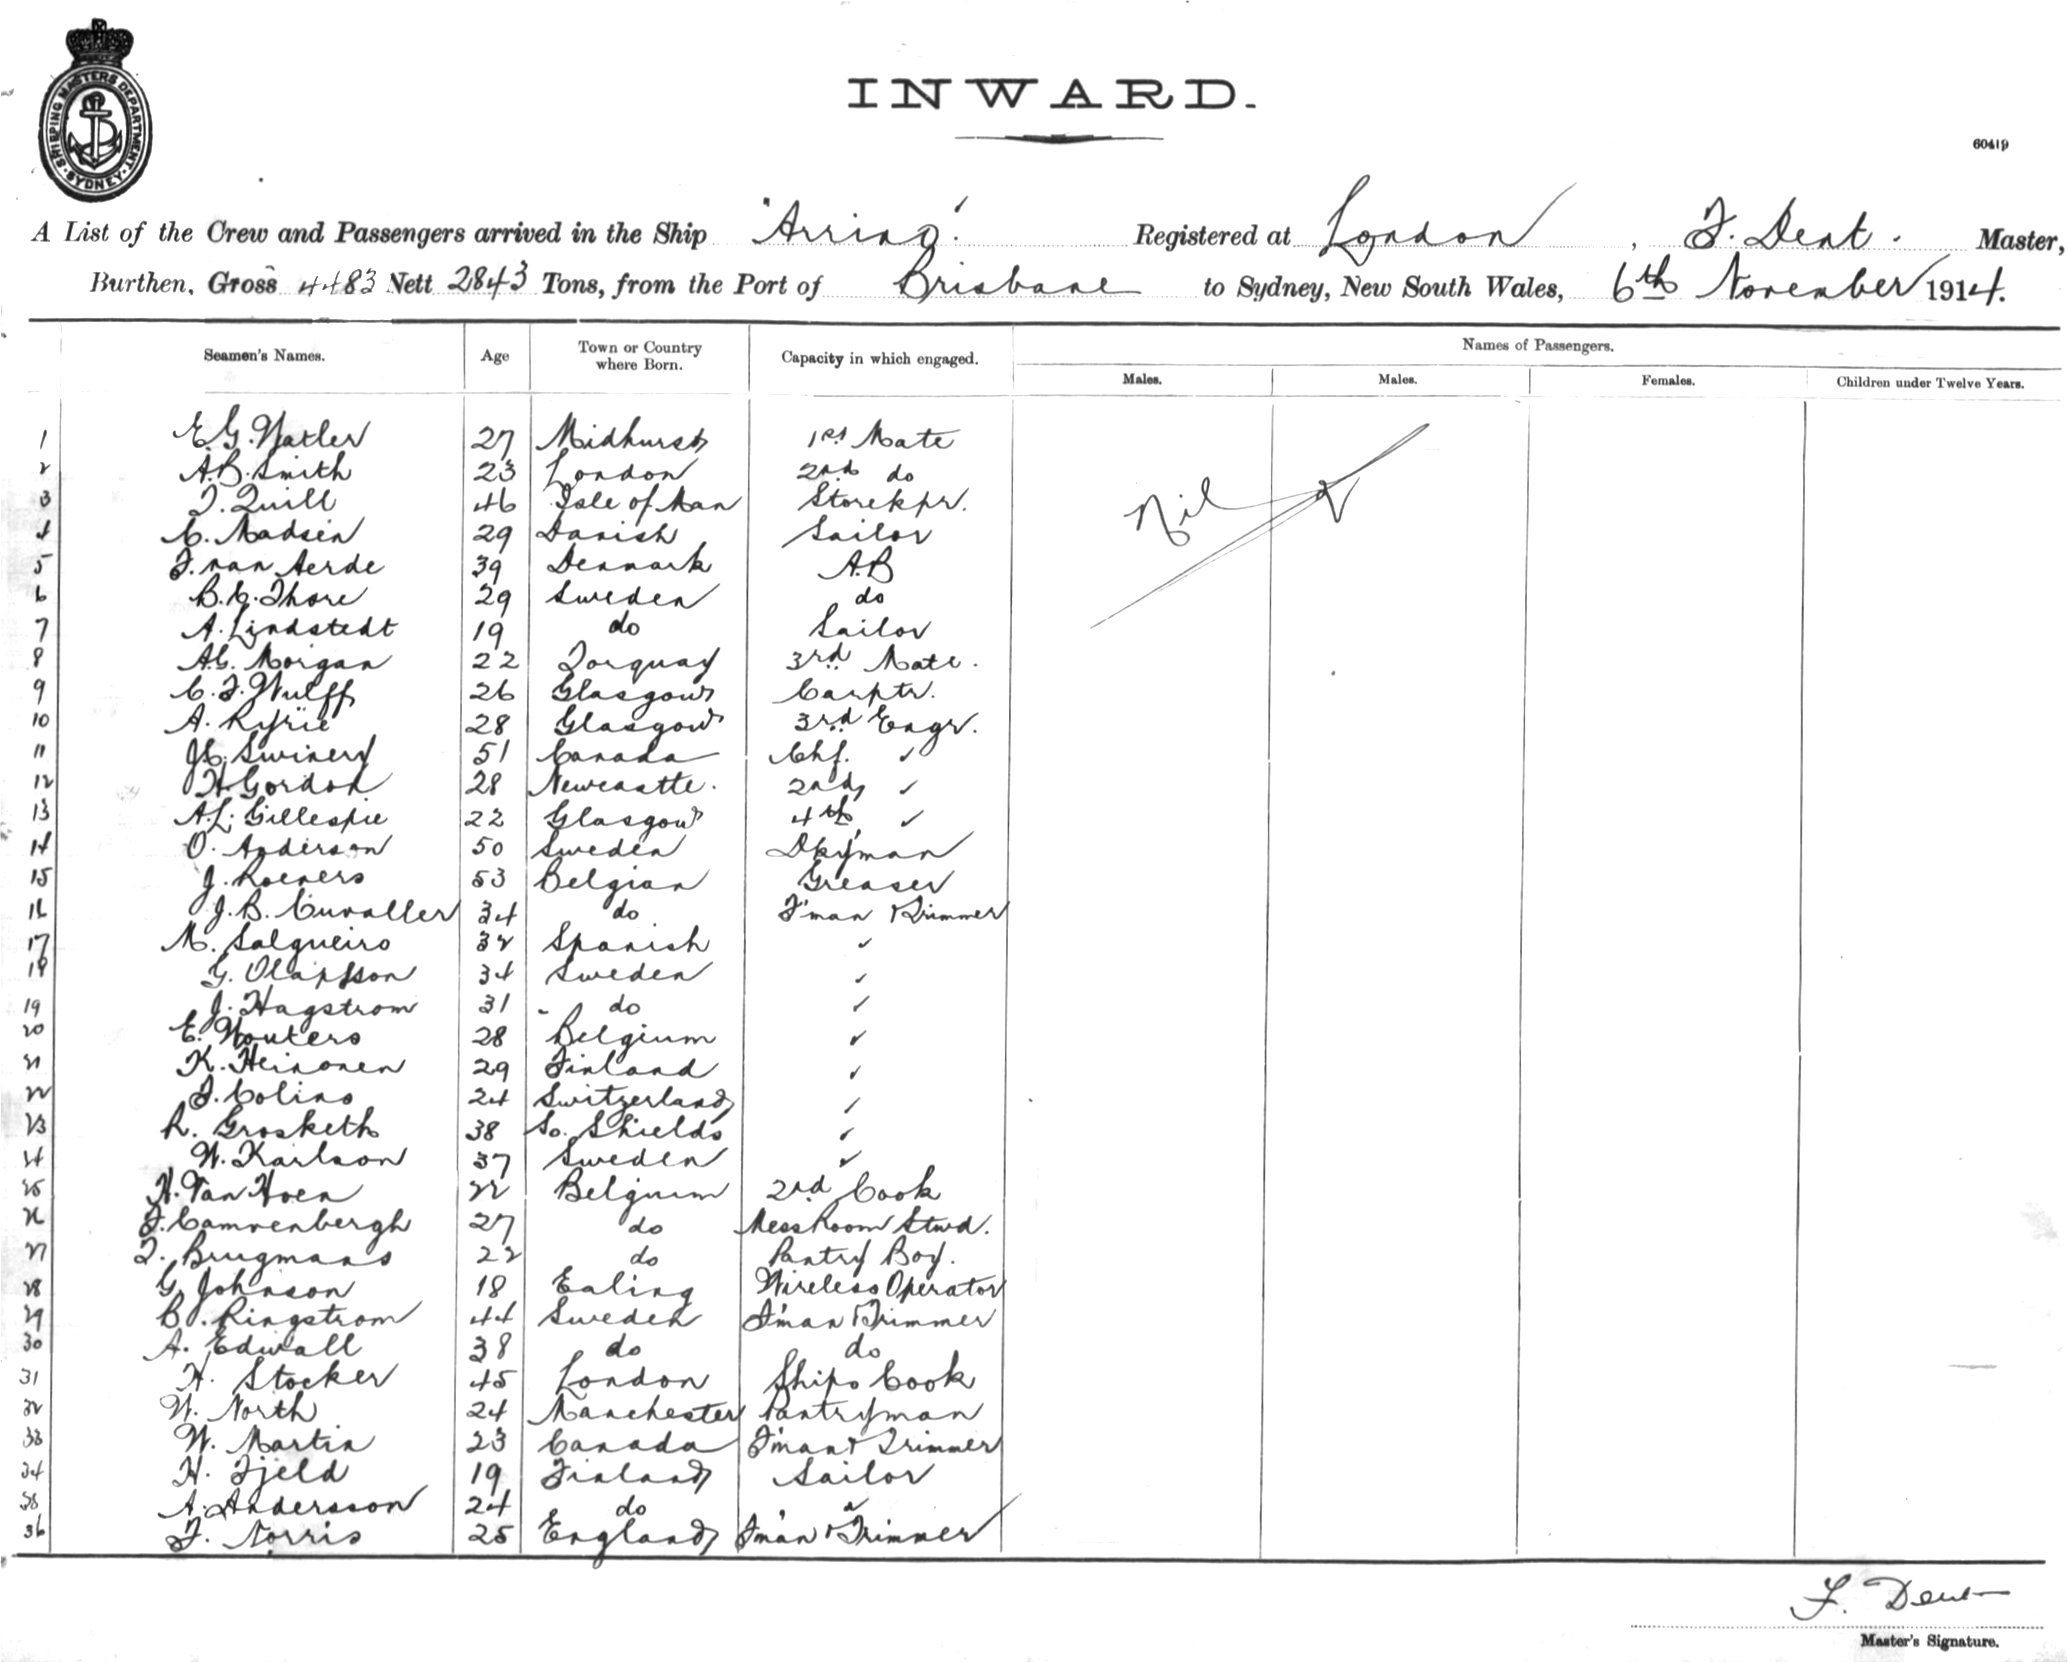 SHIPPING MASTERS DEPARTMENT · SYDNEY ·
INWARD.
60419
A List of the Crew and Passengers arrived in the Ship 'Arrino'. Registered at London, F. Dent. Master,
Burthen, Gross 4483 Nett 2843 Tons, from the Port of Brisbane to Sydney, New South Wales, 6th November 1914.
Seamen's Names. Age Town or Country where Born. Capacity in which engaged. Names of Passengers.
Males. Males. Females. Children under Twelve Years.
1 E G. 27 Midhurst 1st Mate
2 A.B. Smith 23 London 2nd do
3 T. Quill 46 Isle of Man Storekpr. Nil
4 C. Madsen 29 Danish Sailor
5 F. van Aerde 39 Denmark A.B
6 B.C. Thore 29 Sweden do
7 A. Lindstedt 19 do Sailor
8 A.G. Morgan 22 Torquay 3rd Mate.
9 C. F. Wulff 26 Glasgow Carptr.
10 A. Ryrie 28 Glasgow 3rd Engr.
11 Swinery 51 Canada Chf. ✓
12 H. Gordon 28 Newcastle. 2nd ✓
13 A.L. Gillespie 22 Glasgow 4th ✓
14 O. Anderson 50 Sweden Dkyman
15 J. Roeners 53 Belgian Greaser
16 J. B. Cuvaller 34 do F'man & Trimmer
17 M. Salgueiro 32 Spanish ✓
18 G. Olafsson 34 Sweden ✓
19 J. Hagstrom 31 do ✓
20 E. Wouters 28 Belgium ✓
21 K. Heinonen 29 Finland ✓
22 F. Colins 24 Switzerland ✓
23 R. Grosketh 38 So. Shields ✓
24 W. Karlson 37 Sweden ✓
25 H. Van Hoen 22 Belgium 2nd Cook
26 F. Camvenbergh 27 do Mess Room Stwd.
27 T. Brugmans 22 do Pantry Boy.
28 G. Johnson 18 Ealing Wireless Operator
29 B. Ringstrom 44 Sweden F'man & Trimmer
30 A. Edwall 38 do do
31 H. Stocker 45 London Ships Cook
32 W. North 24 Manchester Pantryman
33 W. Martin 23 Canada F'man & Trimmer
34 H. Fjeld 19 Finland Sailor
35 A. Andersson 24 do ✓
36 F. Norris 25 England F'man & Trimmer
F. Dent
Master's Signature.